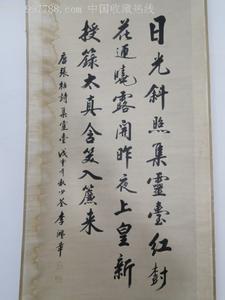 997788.com 中国收藏热线
日光斜照集靈臺紅樹
花迎曉露開昨夜上皇新
授籙太真含笑入簾来
唐張祜詩集靈臺 戊申年秋 少荃 李鴻章